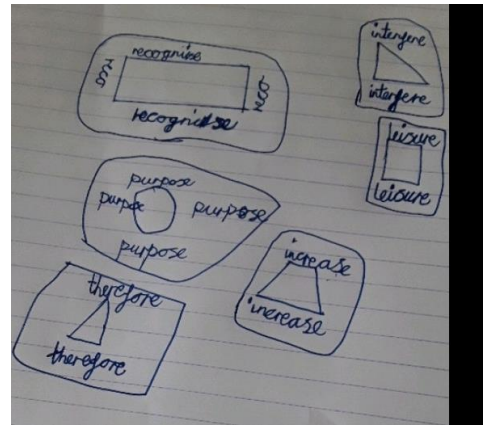 recognise
reco
reco
recognise
interfere
interfere
leisure
leisure
purpose
purpose
purpose
purpose
increase
increase
therefore
therefore